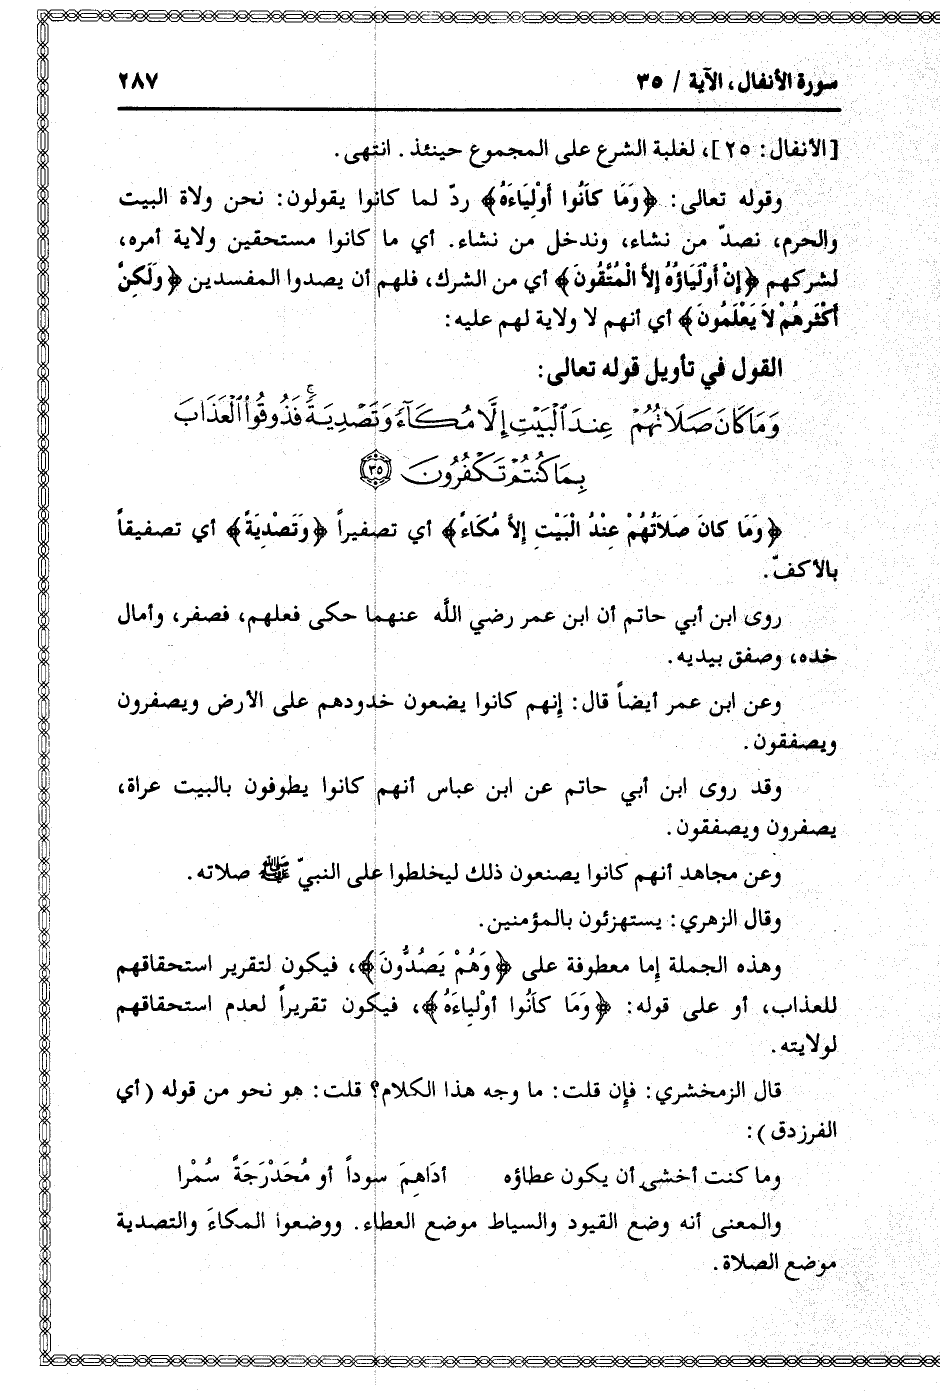 سورة الأنفال، الآية / ٣٥
٢٨٧
[الأنفال: ٢٥]، لغلبة الشرع على المجموع حينئذ. انتهى.
وقوله تعالى: ﴿وَمَا كَانُوا أَوْلِيَاءَهُ﴾ ردّ لما كانوا يقولون: نحن ولاة البيت
والحرم، نصدّ من نشاء، وندخل من نشاء. أي ما كانوا مستحقين ولاية أمره،
لشركهم ﴿إِنْ أَوْلِيَاؤُهُ إِلاَّ الْمُتَّقُونَ﴾ أي من الشرك، فلهم أن يصدوا المفسدين ﴿وَلَكِنَّ
أَكْثَرَهُمْ لاَ يَعْلَمُونَ﴾ أي أنهم لا ولاية لهم عليه:
القول في تأويل قوله تعالى:
وَمَا كَانَ صَلَاتُهُمْ عِندَ ٱلْبَيْتِ إِلَّا مُكَآءً وَتَصْدِيَةً ۚ فَذُوقُوا۟ ٱلْعَذَابَ
بِمَا كُنتُمْ تَكْفُرُونَ ٣٥
﴿وَمَا كانَ صَلاَتُهُمْ عِنْدُ الْبَيْتِ إِلاَّ مُكَاءً﴾ أي تصفيراً ﴿وَتَصْدِيَةً﴾ أي تصفيقاً
بالأكفّ.
روى ابن أبي حاتم أن ابن عمر رضي اللَّه عنهما حكى فعلهم، فصفر، وأمال
خده، وصفق بيديه.
وعن ابن عمر أيضاً قال: إنهم كانوا يضعون خدودهم على الأرض ويصفرون
ويصفقون.
وقد روى ابن أبي حاتم عن ابن عباس أنهم كانوا يطوفون بالبيت عراة،
يصفرون ويصفقون.
وعن مجاهد أنهم كانوا يصنعون ذلك ليخلطوا على النبيّ ﷺ صلاته.
وقال الزهري: يستهزئون بالمؤمنين.
وهذه الجملة إما معطوفة على ﴿وَهُمْ يَصُدُّونَ﴾، فيكون لتقرير استحقاقهم
للعذاب، أو على قوله: ﴿وَمَا كَانُوا أوْلِياءَهُ﴾، فيكون تقريراً لعدم استحقاقهم
لولايته.
قال الزمخشري: فإن قلت: ما وجه هذا الكلام؟ قلت: هو نحو من قوله (أي
الفرزدق):
وما كنت أخشى أن يكون عطاؤه أدَاهِمَ سوداً أو مُحَدْرَجَةً سُمْرا
والمعنى أنه وضع القيود والسياط موضع العطاء. ووضعوا المكاءَ والتصدية
موضع الصلاة.